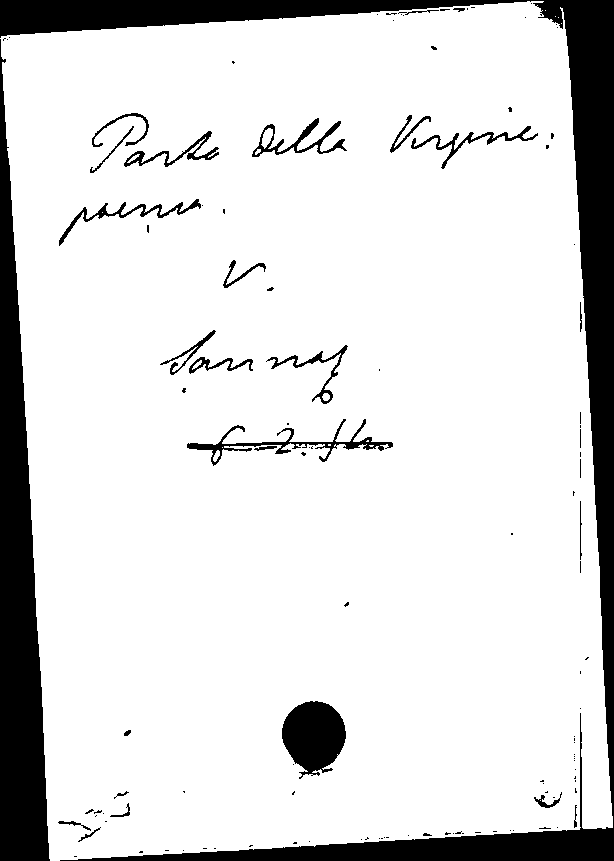 Parto della Vergine:
poema.
V.
Sannaz
6
6 2.